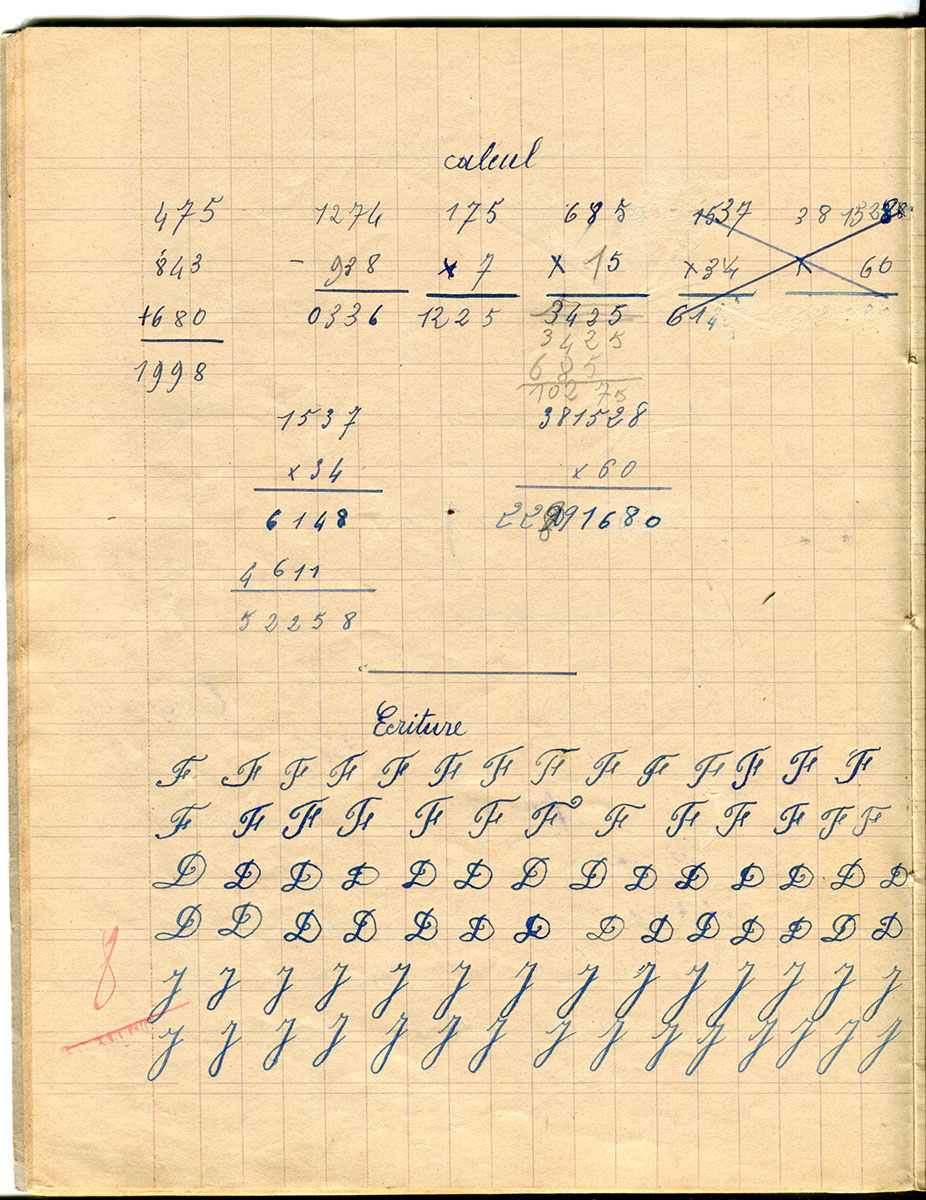 calcul
475 1274 175 685 1537 38 15288
843 - 938 × 7 × 15 ×34 × 60
+680 0336 1225 3425 614
3425
1998 685
10275
1537 381528
×34 × 60
6148 22891680
4611
52258
Ecriture
F F F F F F F F F F F F F F
F F F F F F F F F F F F F
D D D D D D D D D D D D D D
D D D D D D D D D D D D D D
8
y y y y y y y y y y y y y y
y y y y y y y y y y y y y y